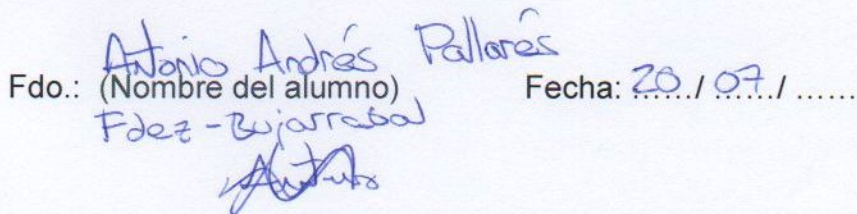 Antonio Andrés Pallarés
Fdo.: (Nombre del alumno) Fecha: 20 / 07 / ......
Fdez-Bujarrabal
Antonio